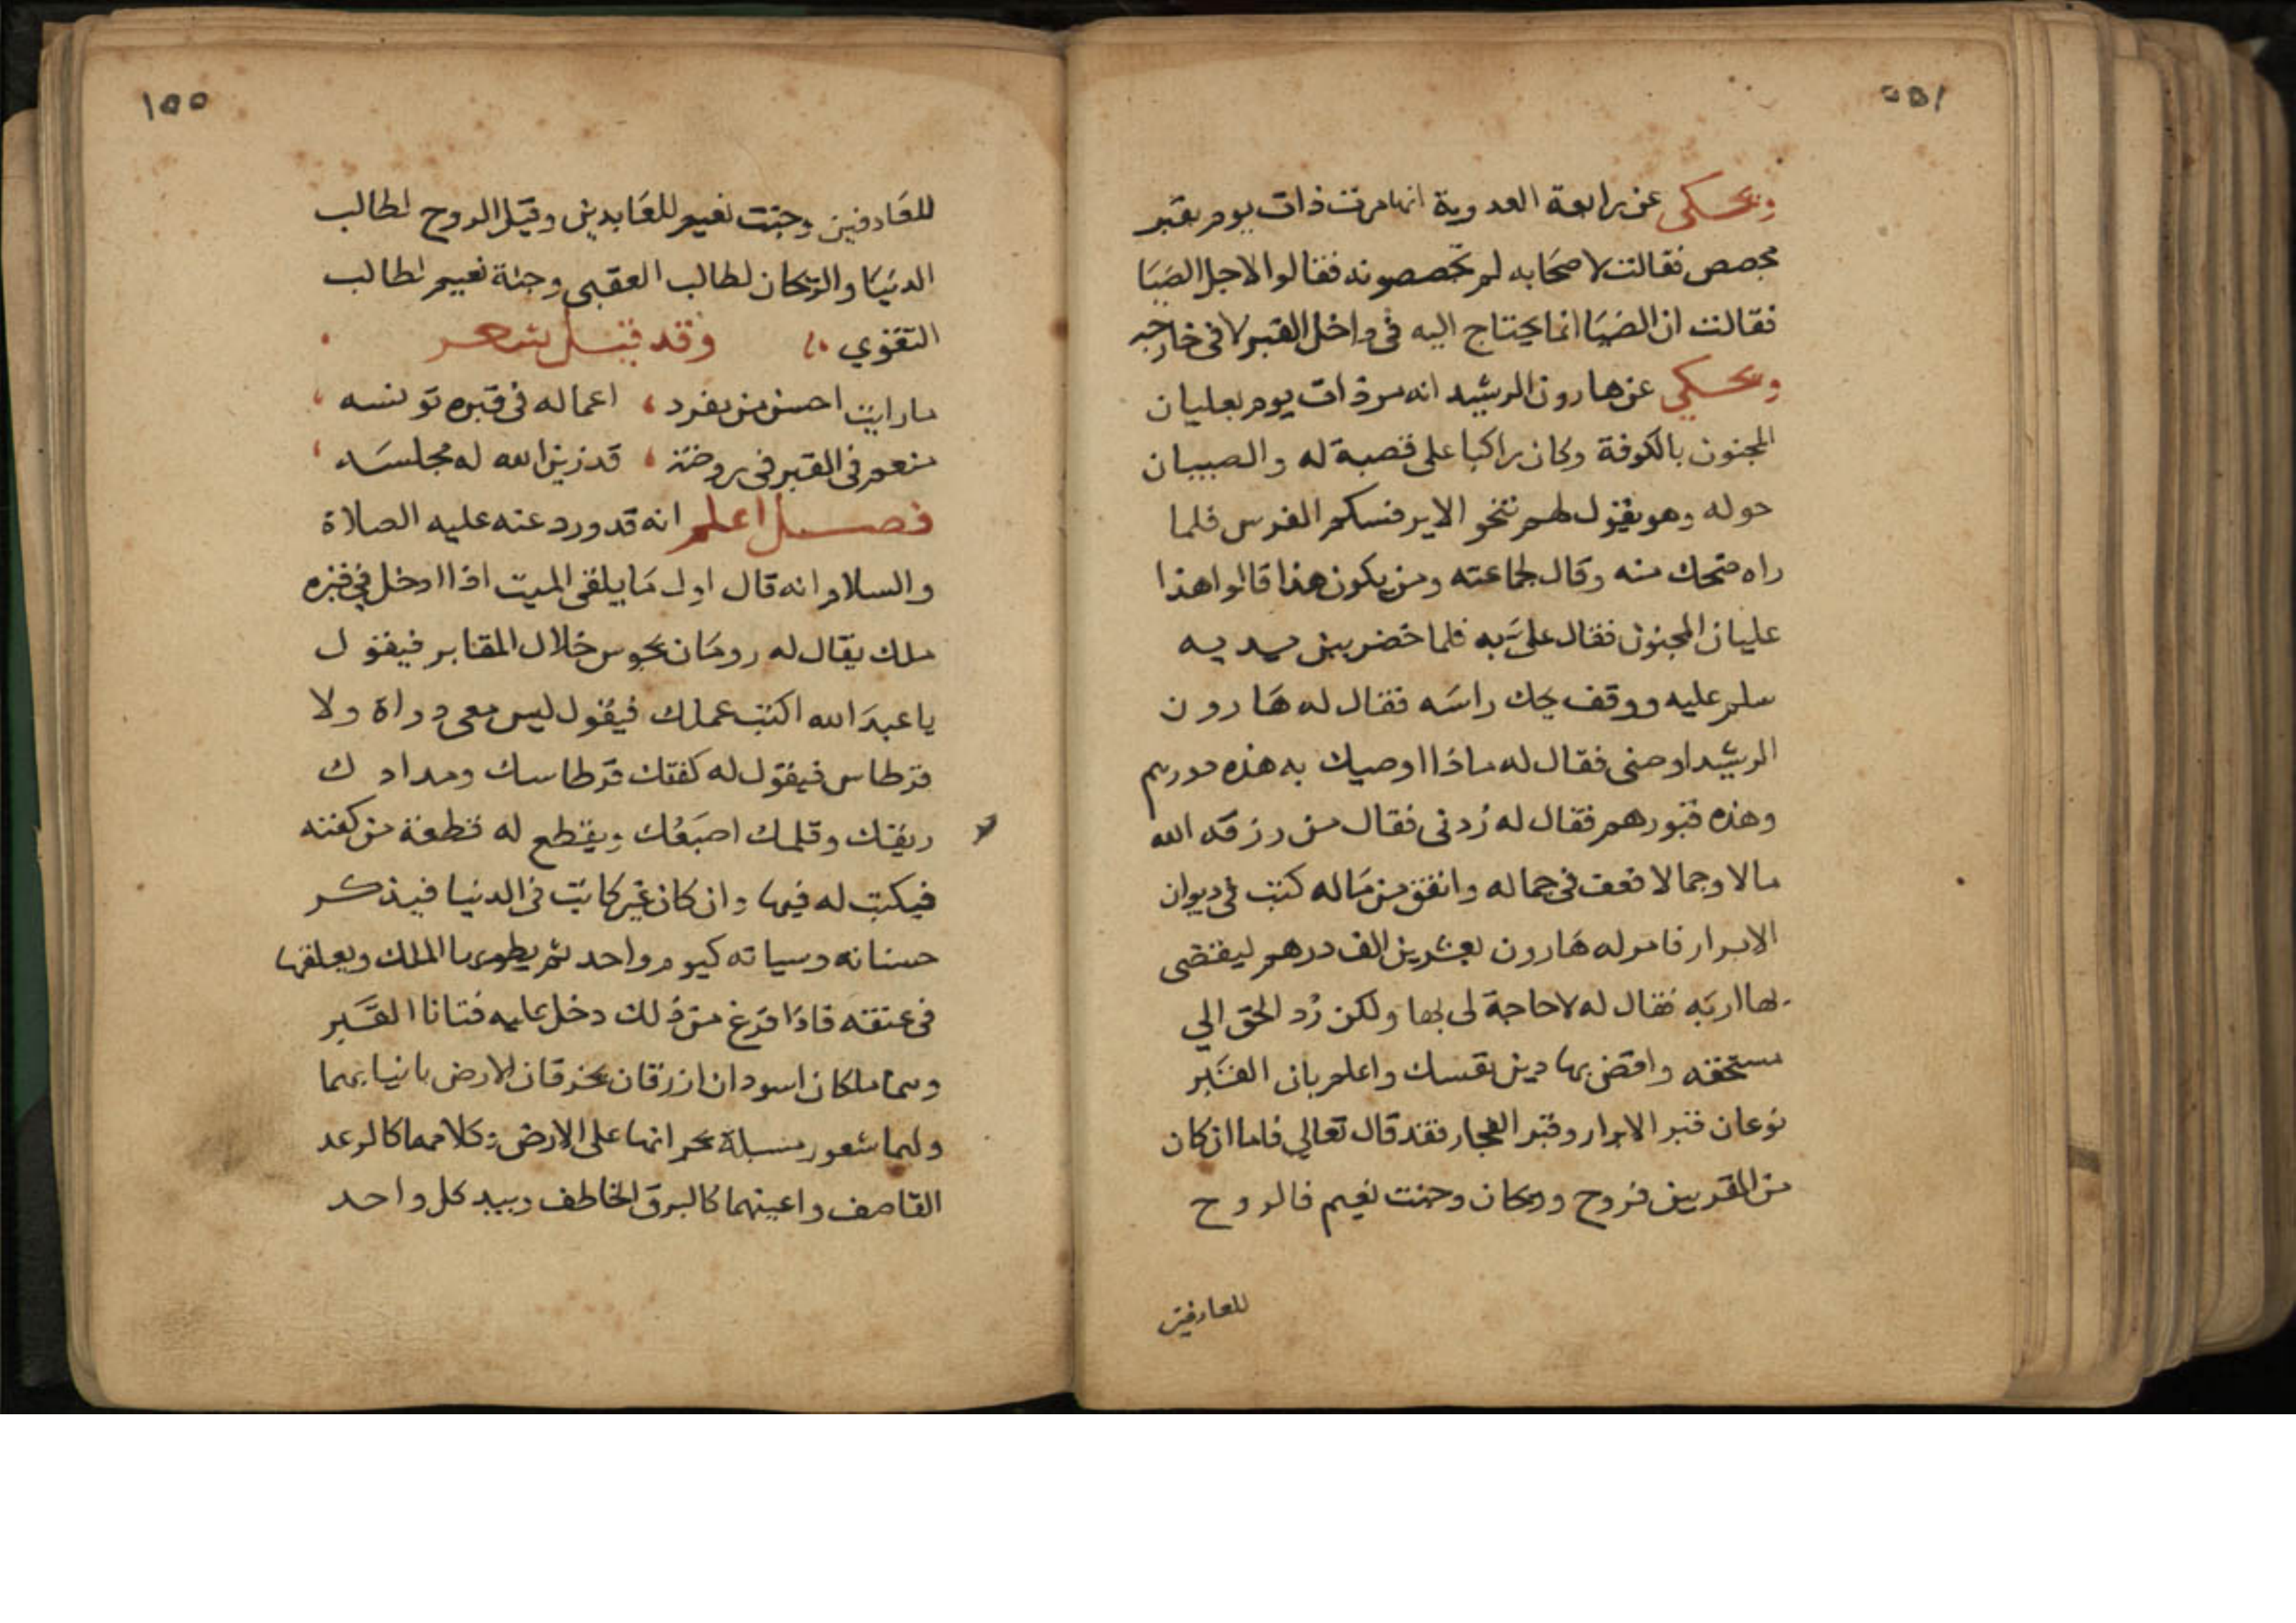 ويحكى عن رابعة العدوية انها مرت ذات يوم بقبر
مجصص فقالت لاصحابه لم تجصصونه فقالوا لاجل الضيا
فقالت ان الضيا انما يحتاج اليه في داخل القبر لا في خارجه
ويحكي عن هارون الرشيد انه مر ذات يوم بعليان
المجنون بالكوفة وكان راكبا على قصبة له والصبيان
حوله وهو يقول لهم تنحو الايرفسكم الفرس فلما
راه ضحك منه وقال لجماعته ومن يكون هذا قالوا هذا
عليان المجنون فقال على به فلما حضر بين يديه
سلم عليه ووقف يحك راسه فقال له هارون
الرشيد اوصنى فقال له ماذا اوصيك به هذه دورهم
وهذه قبورهم فقال له زدنى فقال من رزقه الله
مالا وجمالا فعف في جماله وانفق من ماله كتب في ديوان
الابرار فامر له هارون بعشرين الف درهم ليقضى
بها اربه فقال له لا حاجة لى بها ولكن رد الحق الي
مستحقه واقض بها دين نفسك واعلم بان القبر
نوعان قبر الابرار وقبر الفجار فقد قال تعالي فاما ان كان
من المقربين فروح وريحان وجنت نعيم فالروح
للعارفين
١٥٥
للعارفين وجنت نعيم للعابدين وقيل الروح لطالب
الدنيا والريحان لطالب العقبى وجنة نعيم لطالب
التقوي وقد قيل شعر
ما رايت احسن من يفرد اعماله في قبره تونسه
منعم في القبر في روضة قد زين الله له مجلسه
فصل اعلم انه قد ورد عنه عليه الصلاة
والسلام انه قال اول ما يلقى الميت اذا ادخل في قبره
ملك يقال له رومان يجوس خلال المقابر فيقول
يا عبد الله اكتب عملك فيقول ليس معى دواة ولا
قرطاس فيقول له كفنك قرطاسك ومدادك
ريقك وقلمك اصبعك ويقطع له قطعة من كفنه
فيكتب له فيها وان كان غير كاتب في الدنيا فيذكر
حسناته وسياته كيوم واحد ثم يطويها الملك ويعلقها
في عنقه فاذا فرغ من ذلك دخل عليه فتانا القبر
وهما ملكان اسودان ازرقان يخرقان الارض بانيابهما
ولهما شعور مسبلة يجرانها على الارض كلامهما كالرعد
القاصف واعينهما كالبرق الخاطف وبيد كل واحد